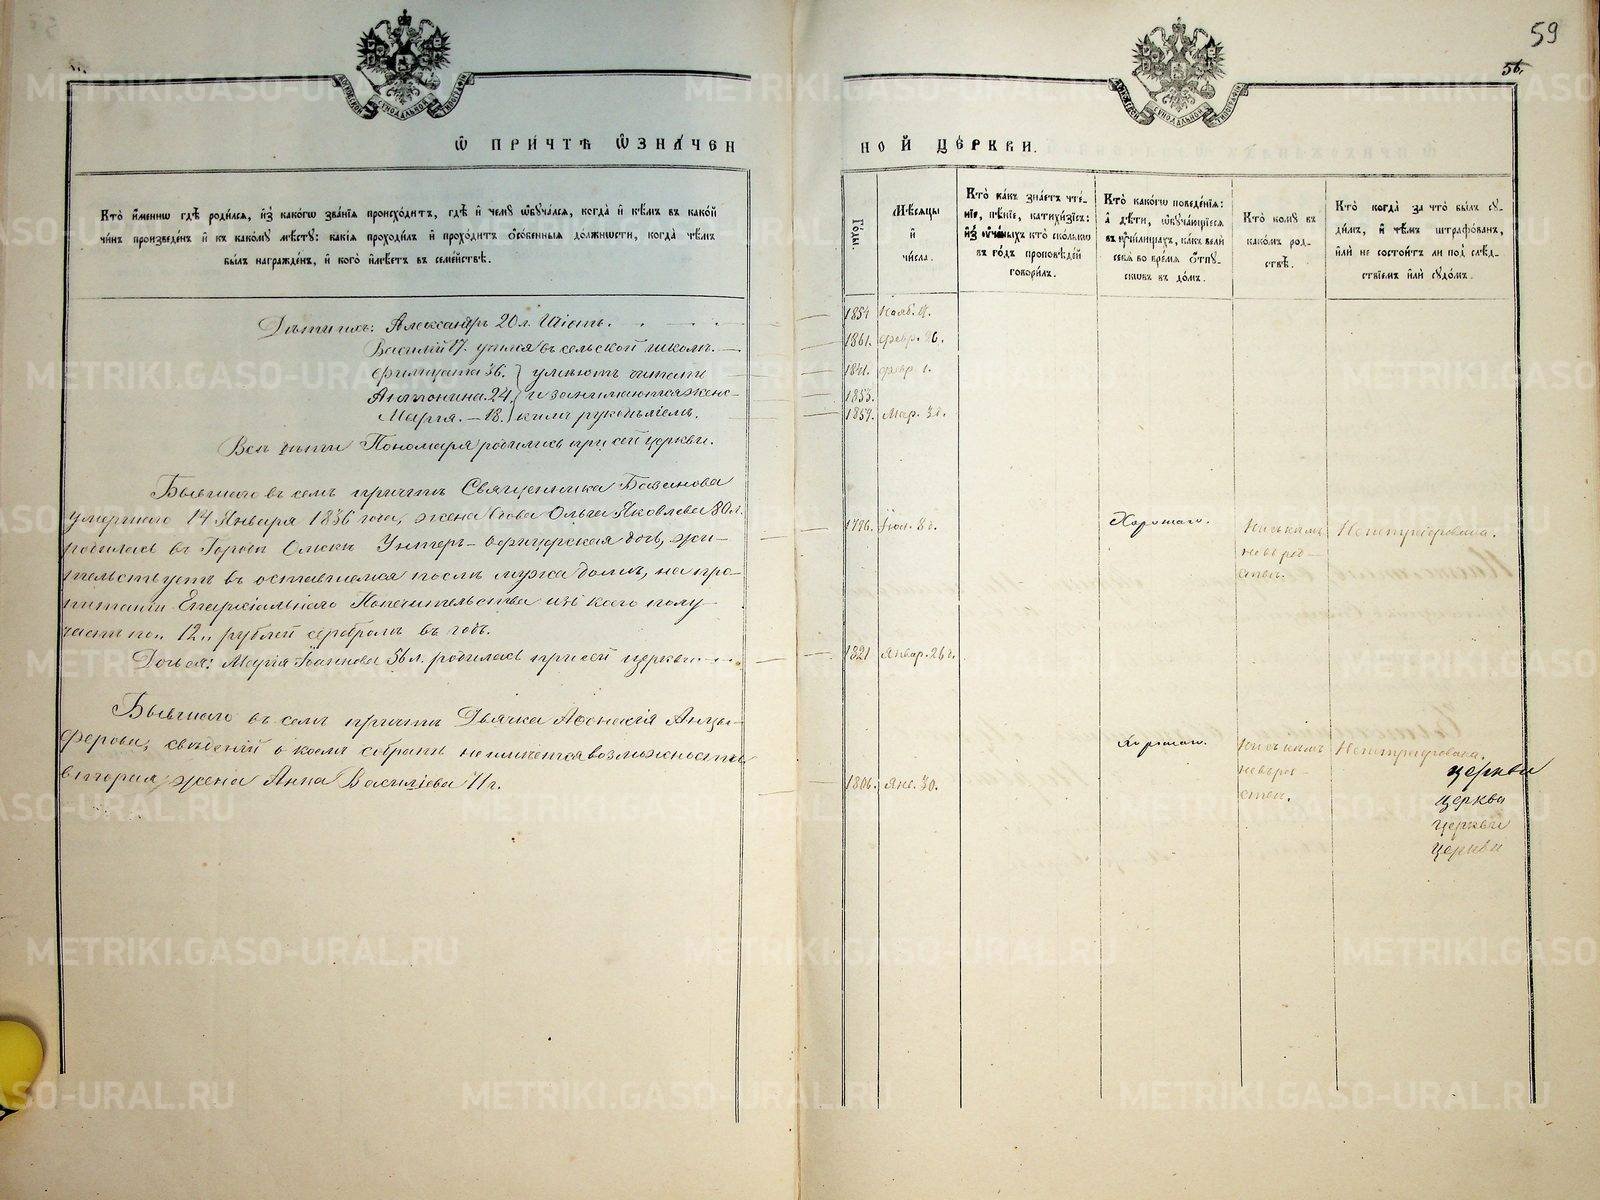 59
56.
МОСКОВСКОЙ СѴНОДАЛЬНОЙ ТИПОГРАФІИ
СѴНОДАЛЬНОЙ ТИПОГРАФІИ
Ѡ ПРИ́ЧТѢ Ѡ҆ЗНА́ЧЕН
НОЙ ЦЕ́РКВИ.
Кто̀ и҆́меннѡ гдѣ̀ роди́лся, и҆з̾ какогѡ зва́нїѧ происхо́дитъ, гдѣ̀ и҆ чему̀ ѡ҆буча́лся, когда̀ и҆ кѣ́мъ въ како́й
чи́нъ произведе́нъ и҆ къ како́му мѣ́сту: какі́ѧ проходи́лъ и҆ прохо́дитъ ѻ҆со́бенныѧ до́лжности, когда̀ чѣ́мъ
бы́лъ награжде́нъ, и҆ кого̀ и҆мѣ́етъ въ семе́йствѣ.
Го́ды
Мѣ́сяцы
и҆
чи́сла.
Кто̀ ка́къ зна́етъ чте́-
нїе, пѣ́нїе, катихи́зісъ:
и҆з̾ ѹ҆че́ныхъ кто̀ ско́лько
въ го́дъ проповѣ́дей
говори́лъ.
Кто̀ како́гѡ поведе́нїѧ:
а҆ дѣ́ти, ѡ҆буча́ющїеся
въ ѹ҆чи́лищахъ, ка́къ велѝ
себѧ̀ во вре́мѧ ѿпу-
скѡвъ въ до́мъ.
Кто̀ кому̀ въ
како́мъ род-
ствѣ̀.
Кто̀ когда̀ за что̀ бы́лъ су-
ди́мъ, и҆ чѣ́мъ штрафо́ванъ,
и҆лѝ не состои́тъ ли под̾ слѣ́д-
ствїемъ и҆лѝ судо́мъ.
Дѣти ихъ: Александръ 20 л.
1854 Нояб. 4.
Василій 17. учился въ сельской школѣ.
1861. Февр. 26.
Филицата 36. } умѣютъ читать
1841. Февр. 1.
Антонина 24. } и занимаются женс-
1853.
Марія. – 18. } кимъ рукодѣліемъ.
1859. Мар. 30.
Всѣ дѣти Пономаря родились при сей церкви.
Бывшаго въ семъ причтѣ Священника Базанова
умершаго 14 Января 1836 года, жена Ольга Яковлева 80 л.
родилась въ Городѣ Омскѣ Унтеръ-офицерская дочь, жи-
тельствуетъ въ оставшемся послѣ мужа домѣ, на про-
питаніи Епархіальнаго Попечительства изъ коего полу-
чаетъ по „12„ рублей серебромъ въ годъ.
1796. Іюл. 8 ч.
Хорошаго.
Ни съ кѣмъ
не въ род-
ствѣ.
Не штрафована.
Дочь ея: Марія Іоаннова 56 л. родилась при сей церкви.
1821 Январ. 26 ч.
Бывшаго въ семъ причтѣ Дьячка Афонасія Анцы-
ферова, свѣденій о коемъ собрать не имѣется возможности
вторая жена Анна Васильева 71 г.
1806. Янв. 30.
Хорошаго.
Ни съ кѣмъ
не въ род-
ствѣ.
Не штрафована.
церкви
церква
церкви
церкви
METRIKI.GASO-URAL.RU